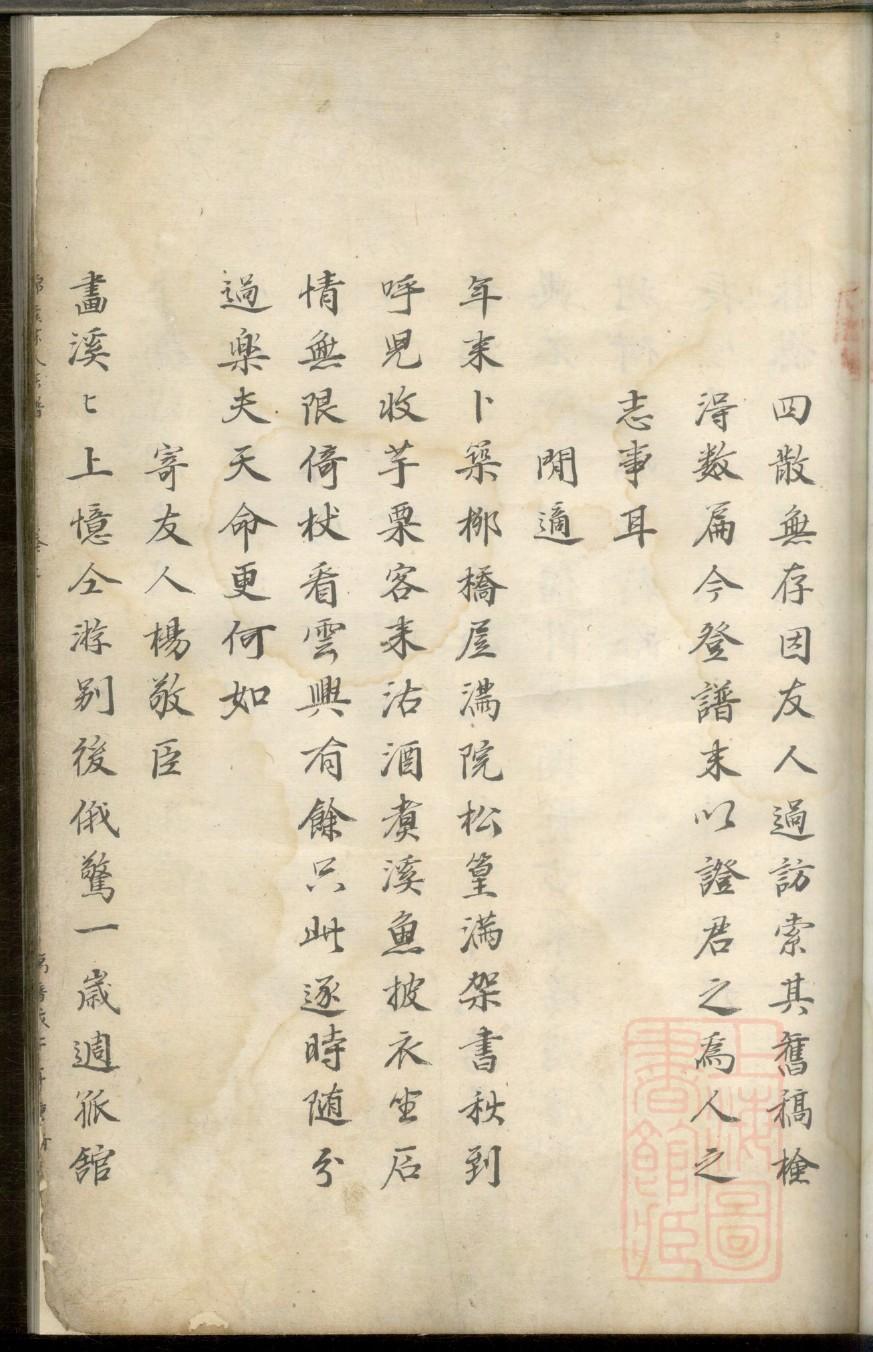 四散無存因友人過訪索其舊稿檢
淂数篇今登譜末以證君之為人之
志事耳
閒適
年来卜築栁橋居滿院松篁滿架書秋到
呼児收芋栗客来沽酒煑溪魚披衣坐石
情無限倚杖看雲興有餘只此逐時随分
過樂夫天命更何如
寄友人楊敬臣
畫溪〻上憶仝游别後俄驚一歳週孤舘
上海圖書館藏